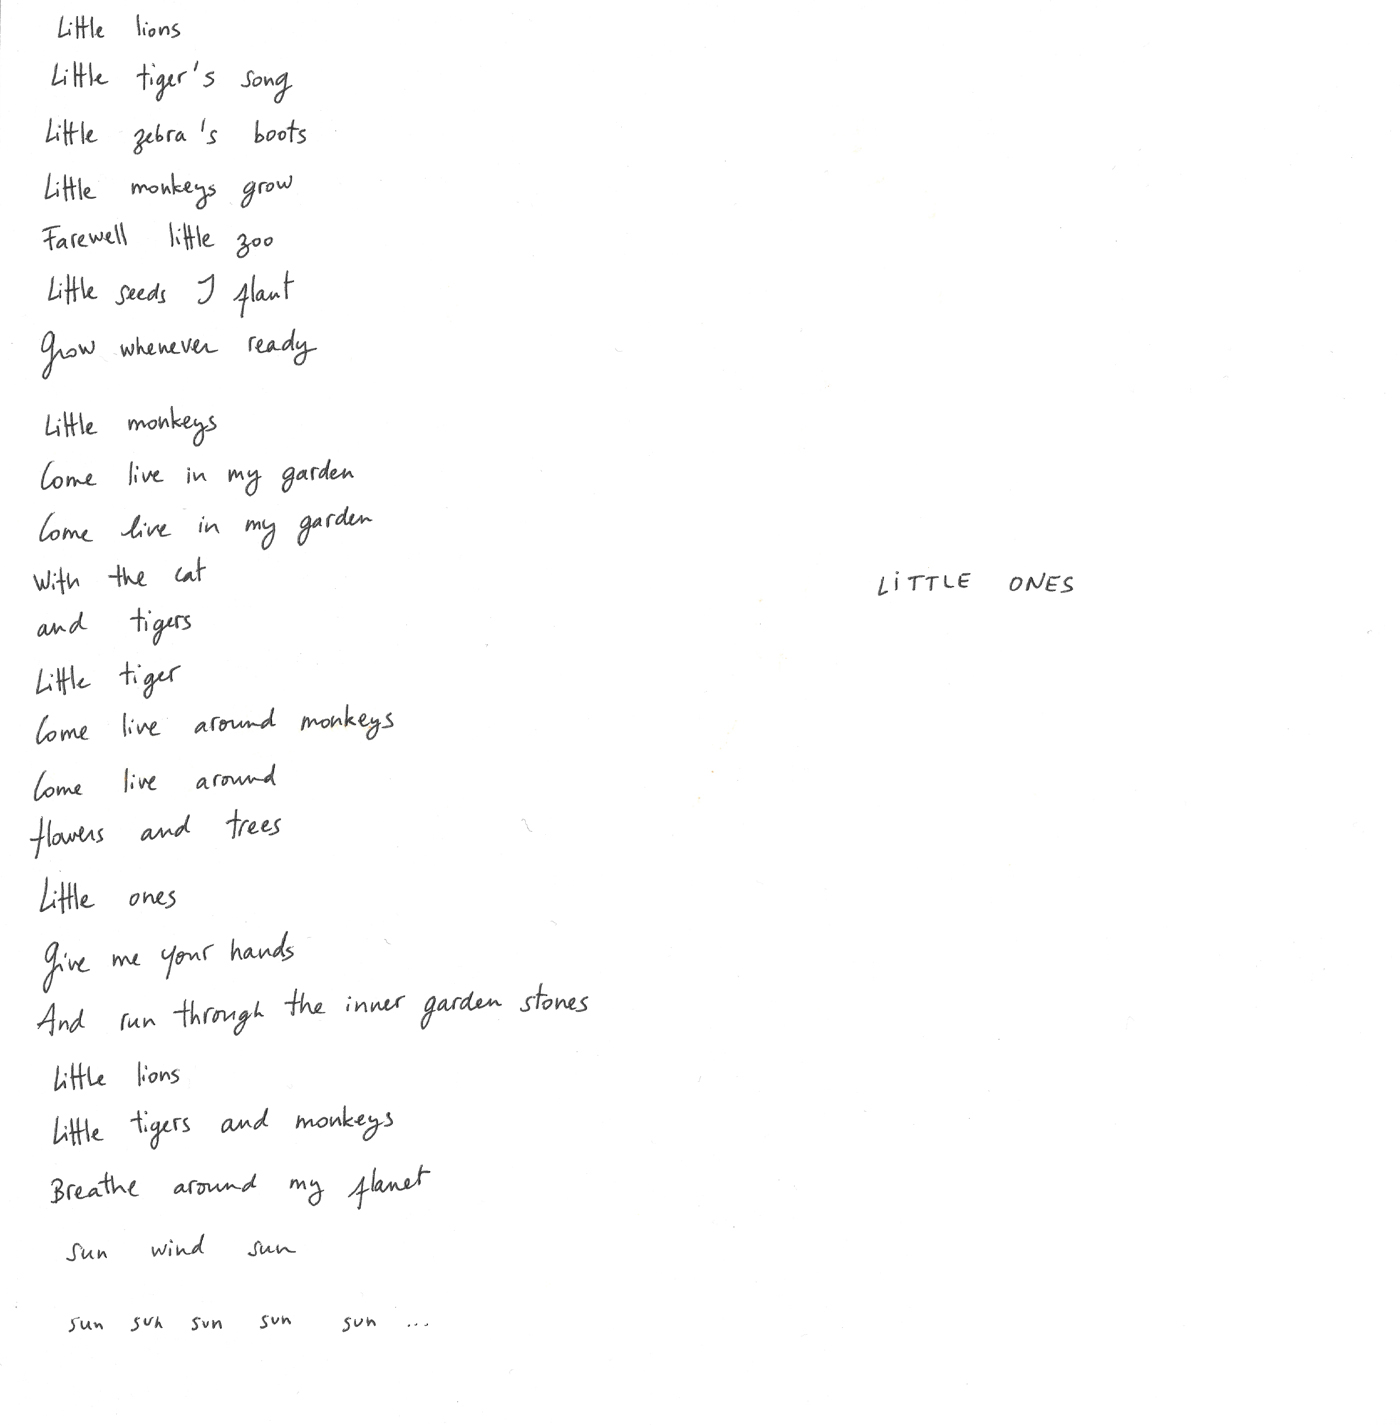 Little lions
Little tiger's song
Little zebra's boots
Little monkeys grow
Farewell little zoo
Little seeds I plant
Grow whenever ready
Little monkeys
Come live in my garden
Come live in my garden
With the cat
and tigers
Little tiger
Come live around monkeys
Come live around
flowers and trees
Little ones
Give me your hands
And run through the inner garden stones
Little lions
Little tigers and monkeys
Breathe around my planet
sun wind sun
sun sun sun sun sun ...
LiTTLE ONES